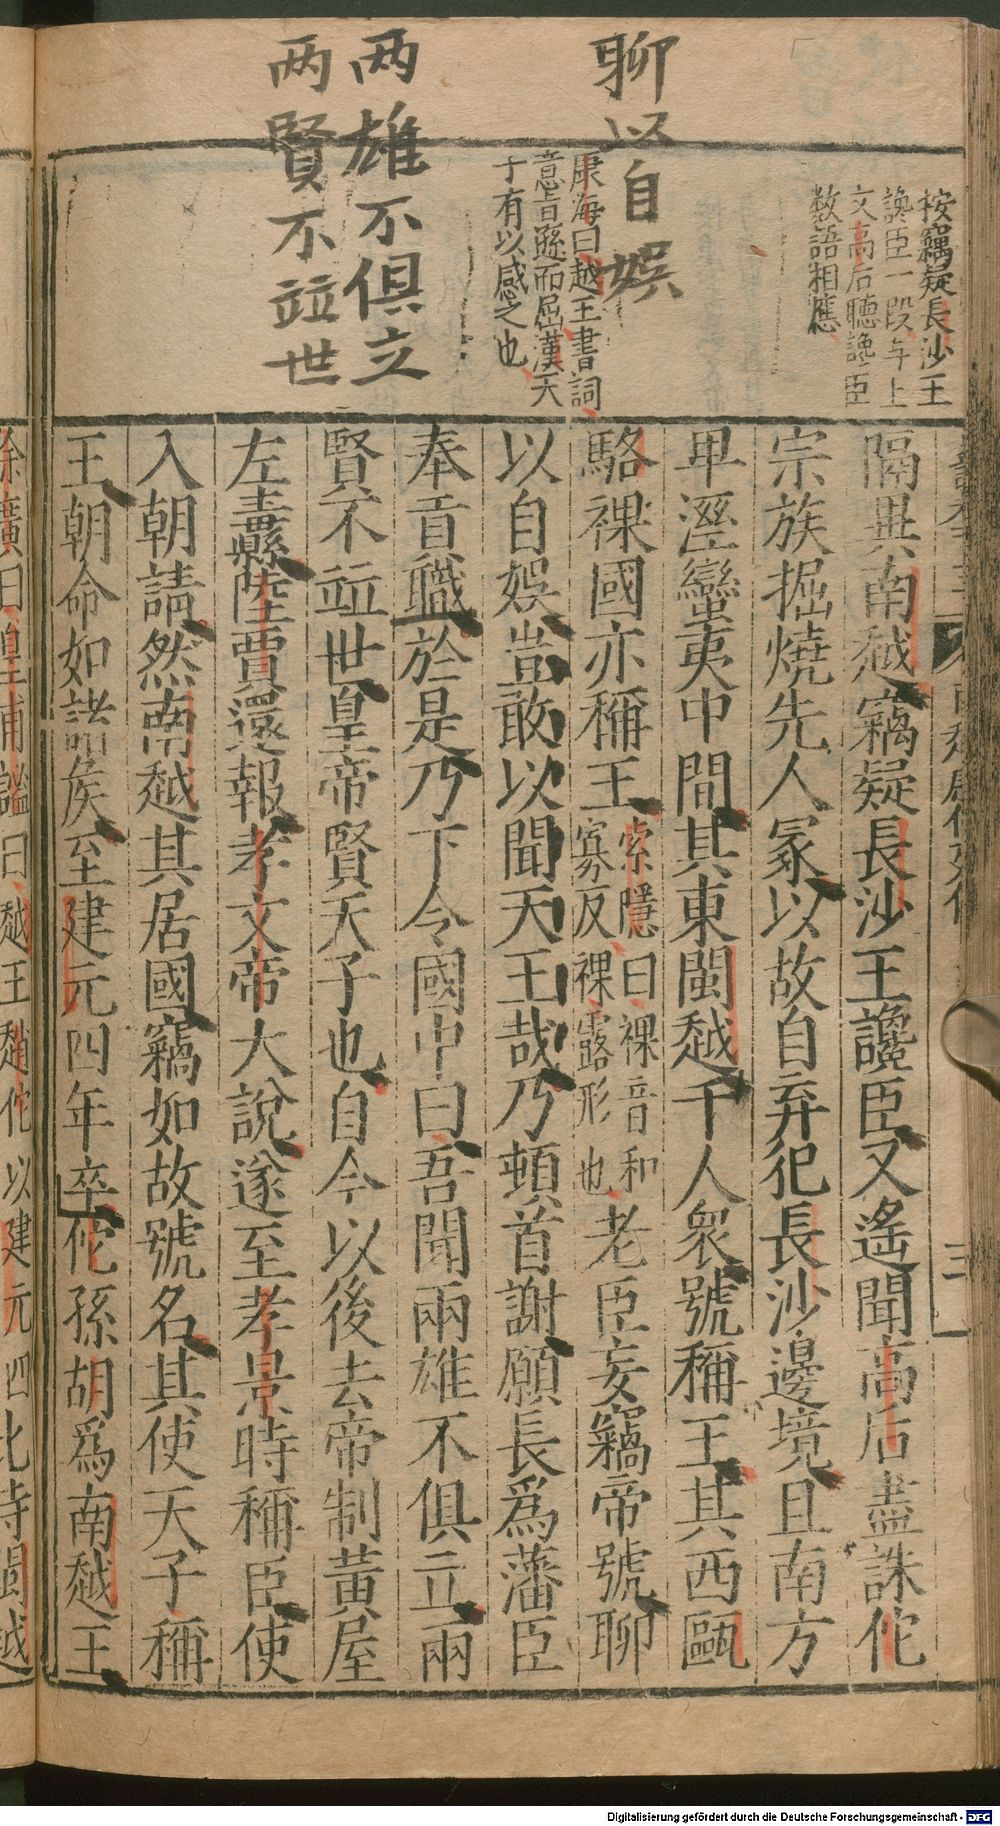 聊以自娯
両雄不俱立
両賢不竝世
按竊疑長沙王
讒臣一段与上
文高后聽讒臣
数語相應
康海曰越王書詞
意旨遜而屈漢天
子有以感之也
隔異南越竊疑長沙王讒臣又遙聞高后盡誅佗
宗族掘燒先人冢以故自弃犯長沙邊境且南方
卑溼蠻夷中間其東閩越千人衆號稱王其西甌
駱裸國亦稱王
索隱曰裸音和
寡反裸露形也
老臣妄竊帝號聊
以自娯豈敢以聞天王哉乃頓首謝願長爲藩臣
奉貢職於是乃下令國中曰吾聞兩雄不俱立兩
賢不竝世皇帝賢天子也自今以後去帝制黄屋
左纛陸賈還報孝文帝大說遂至孝景時稱臣使
入朝請然南越其居國竊如故號名其使天子稱
王朝命如諸侯至建元四年卒佗孫胡爲南越王
徐廣曰皇甫謐曰越王趙佗以建元四
Digitalisierung gefördert durch die Deutsche Forschungsgemeinschaft - DFG